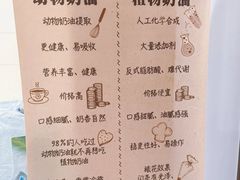 动物奶油 植物奶油
动物奶油提取 人工化学合成
更健康、易吸收 大量添加剂
营养丰富、健康 反式脂肪酸、难代谢
价格高 价格便宜
口感细腻、奶香自然 口感甜腻、油腻感强
98%的人吃过 稳定性好、易操作
动物奶油就不再想吃
植物奶油 裱花效果